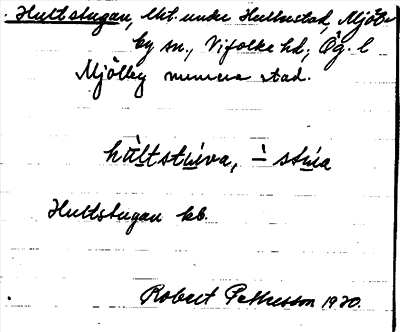 Hultstugan, lht. unde Hulterstad, Mjöl-
by sn., Vifolka hd, Ög. l
Mjölby numera stad.
hultstuva, ÷ stua
Hultstugan kb.
Robert Pettersson 1920.